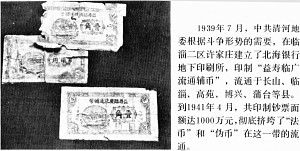 1939年7月，中共清河地
委根据斗争形势的需要，在临
淄二区许家庄建立了北海银行
地下印刷所，印制“益寿临广
流通辅币”，流通于长山、临
淄、高苑、博兴、蒲台等县。
到1941年4月，共印制钞票面
额达1000万元，彻底挤垮了“法
币”和“伪币”在这一带的流
通。